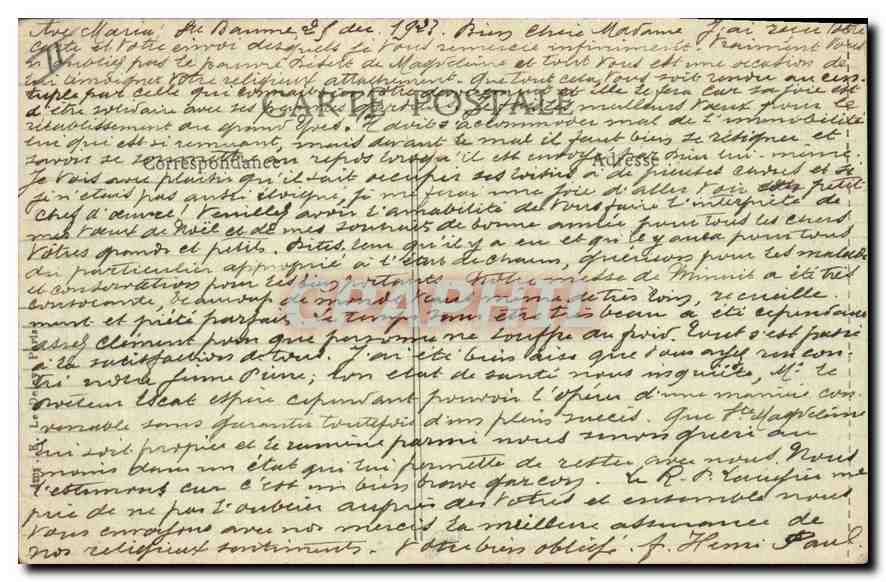 Ave Maria! Ste Baume, 25 déc. 1927. Bien chère Madame J'ai reçu votre
carte et votre envoi desquels je vous remercie infiniment. Vraiment vous
n'oubliez pas le pauvre désert de Magdeleine et tout vous est une occasion de
lui témoigner votre religieux attachement. Que tout cela vous soit rendu au cen-
tuple par celle qui et elle le fera car sa joie est
d'être solidaire avec ses meilleurs vœux pour le
CARTE POSTALE
rétablissement du grand Il doit s'accommoder mal de l'immobilité
lui qui est si remuant, mais devant le mal il faut bien se résigner et
savoir se repos lorsqu'il est envoyé par Dieu lui-même.
Correspondance
Adresse
Je vois avec plaisir qu'il sait occuper ses loisirs à de pieuses et
si n'étais pas aussi éloigné, je me ferai une joie d'aller voir petit
chef d'œuvre! Veuillez avoir l'amabilité de vous faire l'interprète de
mes vœux de Noël et de mes souhaits de bonne année pour tous les chers
vôtres grands et petits. Dites leur qu'il y a eu et qu'il y aura pour tous
du particulier approprié à l'état de chacun, guérison pour les malades
et conservation pour les bien portants. Notre messe de Minuit a été très
beaucoup de monde, venu même de très loin, recueille-
ment et piété parfait. Le temps sans être très beau a été cependant
assez clément pour que personne ne souffre du froid. Tout s'est passé
à la satisfaction de tous. J'ai été bien aise que vous ayez rencon-
tré notre jeune Pierre; son état de santé nous inquiète, Mr le
docteur Escat espère cependant pouvoir l'opérer d'une manière con-
venable sans garantir toutefois d'un plein succès. Que Ste Magdeleine
lui soit propice et le ramène parmi nous sinon guéri au
moins dans un état qui lui permette de rester avec nous. Nous
l'estimons car c'est un bien brave garçon. Le R. P. me
prie de ne pas l'oublier auprès des vôtres et ensemble nous
vous envoyons avec nos mercis la meilleure assurance de
nos religieux sentiments. Votre bien obligé. f. Henri Paul.
CPAPHIL